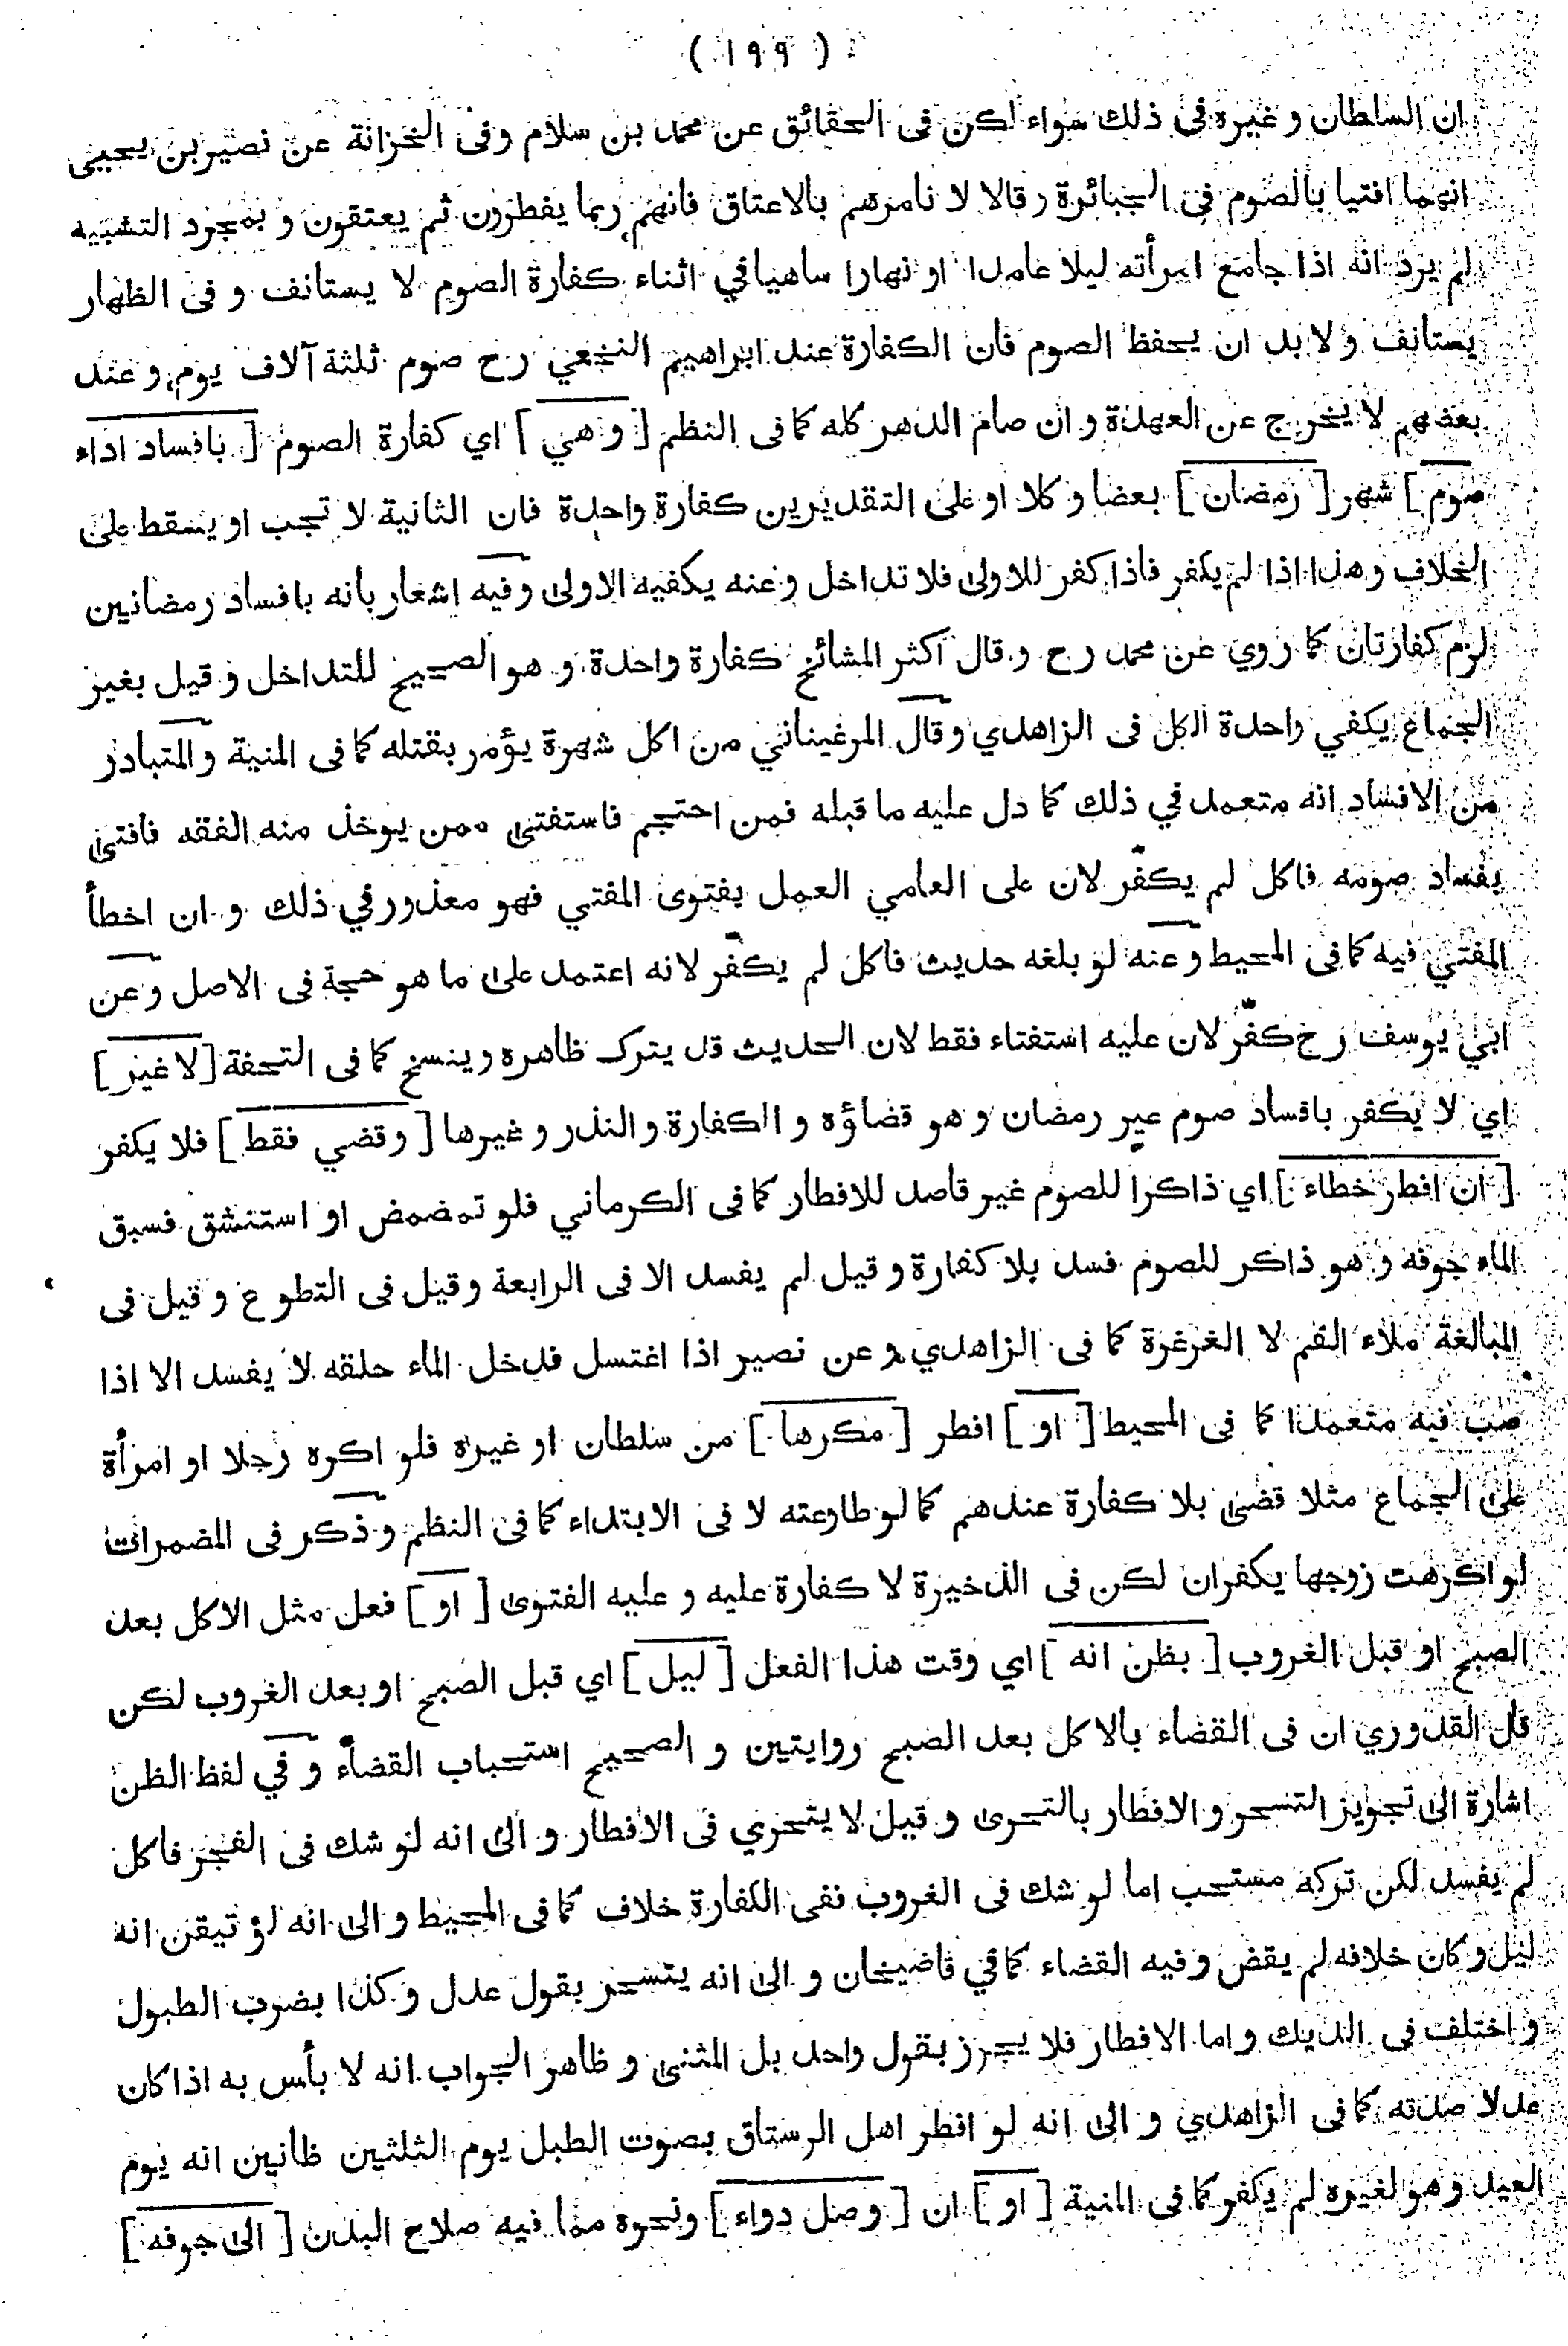 ( ١٩٩ )
ان السلطان و غيره في ذلك سواء لكن فى الحقائق عن محمد بن سلام وفى الخزانة عن نصير بن يحيى
انهما افتيا بالصوم فى الجبائرة وقالا لا نامرهم بالاعتاق فانهم ربما يفطرون ثم يعتقون و بمجرد التشبيه
لم يرد انه اذا جامع امرأته ليلا عامدا او نهارا ساهيا في اثناء كفارة الصوم لا يستانف و فى الظهار
يستانف و لا بد ان يحفظ الصوم فان الكفارة عند ابراهيم النخعي رح صوم ثلثة آلاف يوم و عند
بعضهم لا يخرج عن العهدة و ان صام الدهر كله كما فى النظم [ و هي ] اي كفارة الصوم [ بافساد اداء
صوم ] شهر [ رمضان ] بعضا و كلا او على التقديرين كفارة واحدة فان الثانية لا تجب او يسقط على
الخلاف و هذا اذا لم يكفر فاذا كفر للاولى فلا تداخل و عنه يكفيه الاولى و فيه اشعار بانه بافساد رمضانين
لزم كفارتان كما روي عن محمد رح و قال اكثر المشائخ كفارة واحدة و هو الصحيح للتداخل و قيل بغير
الجماع يكفي واحدة الكل فى الزاهدي و قال المرغيناني من اكل شهرة يؤمر بقتله كما فى المنية و المتبادر
من الافساد انه متعمد في ذلك كما دل عليه ما قبله فمن احتجم فاستفتى ممن يوخذ منه الفقه فافتى
بفساد صومه فاكل لم يكفّر لان على العامي العمل بفتوى المفتي فهو معذور في ذلك و ان اخطأ
المفتي فيه كما فى المحيط و عنه لو بلغه حديث فاكل لم يكفّر لانه اعتمد على ما هو حجة فى الاصل و عن
ابي يوسف رح كفّر لان عليه استفتاء فقط لان الحديث قد يترك ظاهره وينسخ كما فى التحفة [ لا غير ]
اي لا يكفر بافساد صوم غير رمضان و هو قضاؤه و الكفارة و النذر و غيرها [ و قضي فقط ] فلا يكفر
[ ان افطر خطاء ] اي ذاكرا للصوم غير قاصد للافطار كما فى الكرماني فلو تمضمض او استنشق فسبق
الماء جوفه و هو ذاكر للصوم فسد بلا كفارة و قيل لم يفسد الا فى الرابعة و قيل فى التطوع و قيل فى
المبالغة ملاء الفم لا الغرغرة كما فى الزاهدي و عن نصير اذا اغتسل فدخل الماء حلقه لا يفسد الا اذا
صب فيه متعمدا كما فى المحيط [ او ] افطر [ مكرها ] من سلطان او غيره فلو اكره رجلا او امرأة
على الجماع مثلا قضى بلا كفارة عندهم كما لو طاوعته لا فى الابتداء كما فى النظم و ذكر فى المضمرات
لو اكرهت زوجها يكفران لكن فى الذخيرة لا كفارة عليه و عليه الفتوى [ او ] فعل مثل الاكل بعد
الصبح او قبل الغروب [ بظن انه ] اي وقت هذا الفعل [ ليل ] اي قبل الصبح او بعد الغروب لكن
قال القدوري ان فى القضاء بالاكل بعد الصبح روايتين و الصحيح استحباب القضاء و في لفظ الظن
اشارة الى تجويز التسحر و الافطار بالتحرى و قيل لا يتحري فى الافطار و الى انه لو شك فى الفجر فاكل
لم يفسد لكن تركه مستحب اما لو شك فى الغروب نفى الكفارة خلاف كما فى المحيط و الى انه لو تيقن انه
ليل و كان خلافه لم يقض و فيه القضاء كما في قاضيخان و الى انه يتسحر بقول عدل و كذا بضرب الطبول
و اختلف فى الديك و اما الافطار فلا يجوز بقول واحد بل المثنى و ظاهر الجواب انه لا بأس به اذا كان
عدلا صدقه كما فى الزاهدي و الى انه لو افطر اهل الرستاق بصوت الطبل يوم الثلثين ظانين انه يوم
العيد و هو لغيره لم يكفر كما فى المنية [ او ] ان [ وصل دواء ] ونحوه مما فيه صلاح البدن [ الى جوفه ]